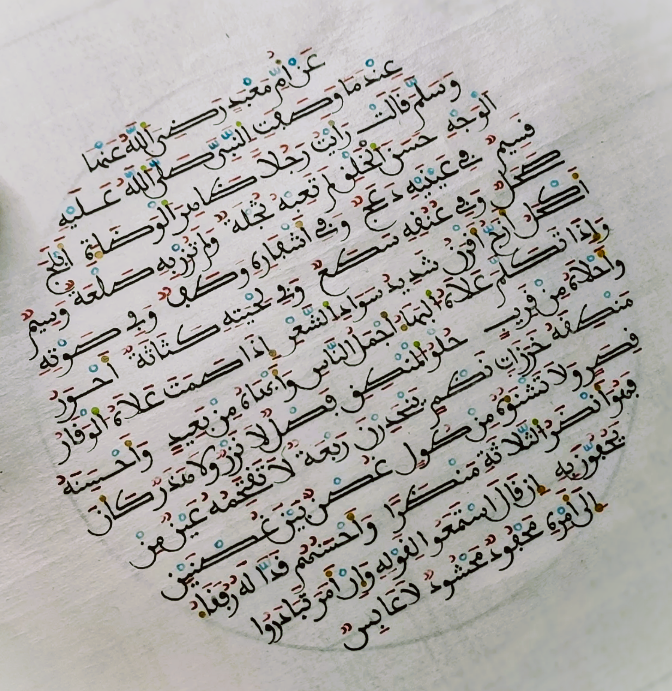 عن أم معبد رضي الله عنها
عندما وصفت النبي صلى الله عليه
وسلم قالت رأيت رجلا كامل الوضاءة أبلج
الوجه حسن الخلق لم تعبه ثجلة ولم تزر به صلعة وسيم
قسيم في عينيه دعج وفي أشفاره وطف وفي صوته
صحل وفي عنقه سطع وفي لحيته كثاثة أحور
أكحل أزج أقرن شديد سواد الشعر إذا صمت علاه الوقار
وإذا تكلم علاه البهاء أجمل الناس وأبهاه من بعيد وأحسنه
وأحلاه من قريب حلو المنطق فصل لا نزر ولا هذر كأن
منطقه خرزات نظم يتحدرن ربعة لا تقتحمه عين من
قصر ولا تشنؤه من طول غصن بين غصنين
فهو أنضر الثلاثة منظرا وأحسنهم قدا له رفقاء
يحفون به إن قال استمعوا لقوله وإن أمر تبادروا
إلى أمره محفود محشود لا عابس